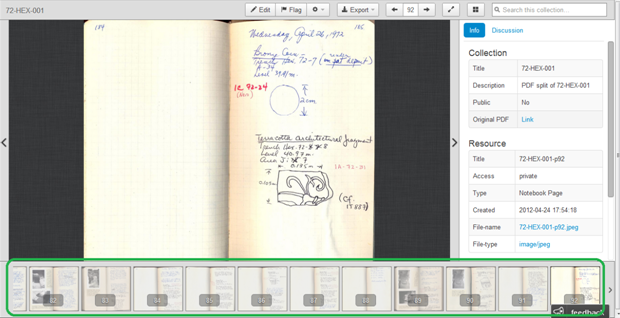 72-HEX-001
Edit
Flag
Export
92
Search this collection...
184
185
Wednesday, April 26, 1972
Bronze Coin -
Trench Hex. 72-7 (under
A-34
Level 39.91 m.
IC 72-24
2cm
Terracotta architectural fragment
Level 40.97 m.
0.125m
(Cf.
Info
Discussion
Collection
Title 72-HEX-001
Description PDF split of 72-HEX-001
Public No
Original PDF Link
Resource
Title 72-HEX-001-p92
Access private
Type Notebook Page
Created 2012-04-24 17:54:18
File-name 72-HEX-001-p92.jpeg
File-type image/jpeg
82
83
84
85
86
87
88
89
90
91
feedback